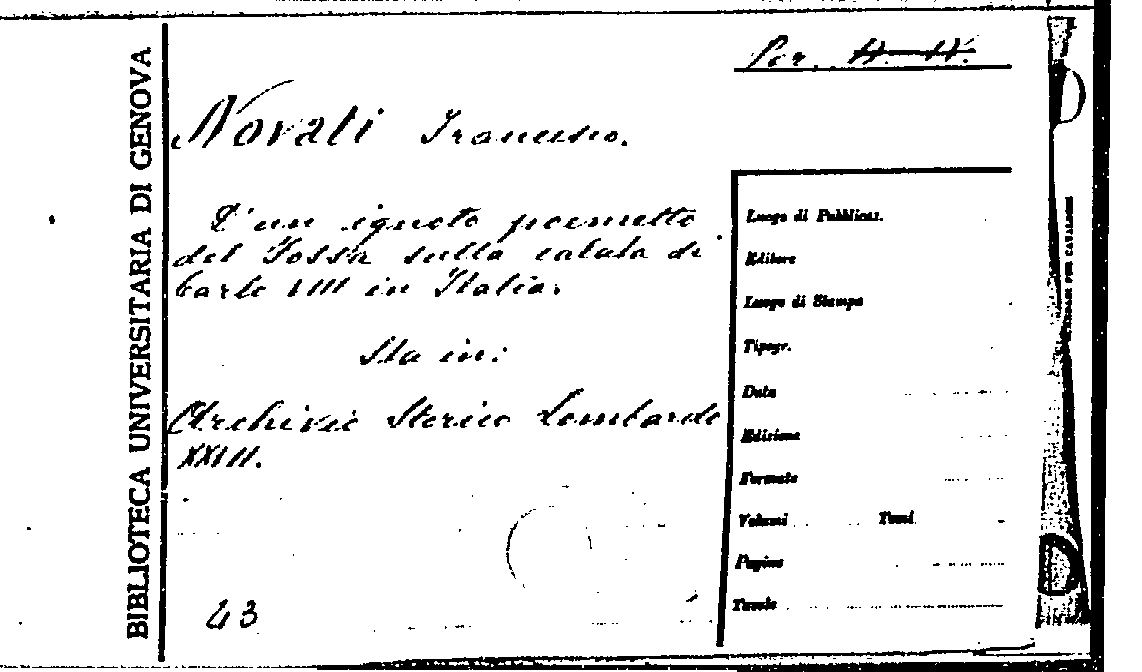 BIBLIOTECA UNIVERSITARIA DI GENOVA
Per. A. IV.
Novati Francesco.
D'un ignoto poemetto
del Fossa sulla calata di
Carlo VIII in Italia.
Sta in:
Archivio Storico Lombardo
XXIII.
43
Luogo di Pubblicaz.
Editore
Luogo di Stampa
Tipogr.
Data
Edizione
Formato
Volumi Tomi
Pagine
Tavole